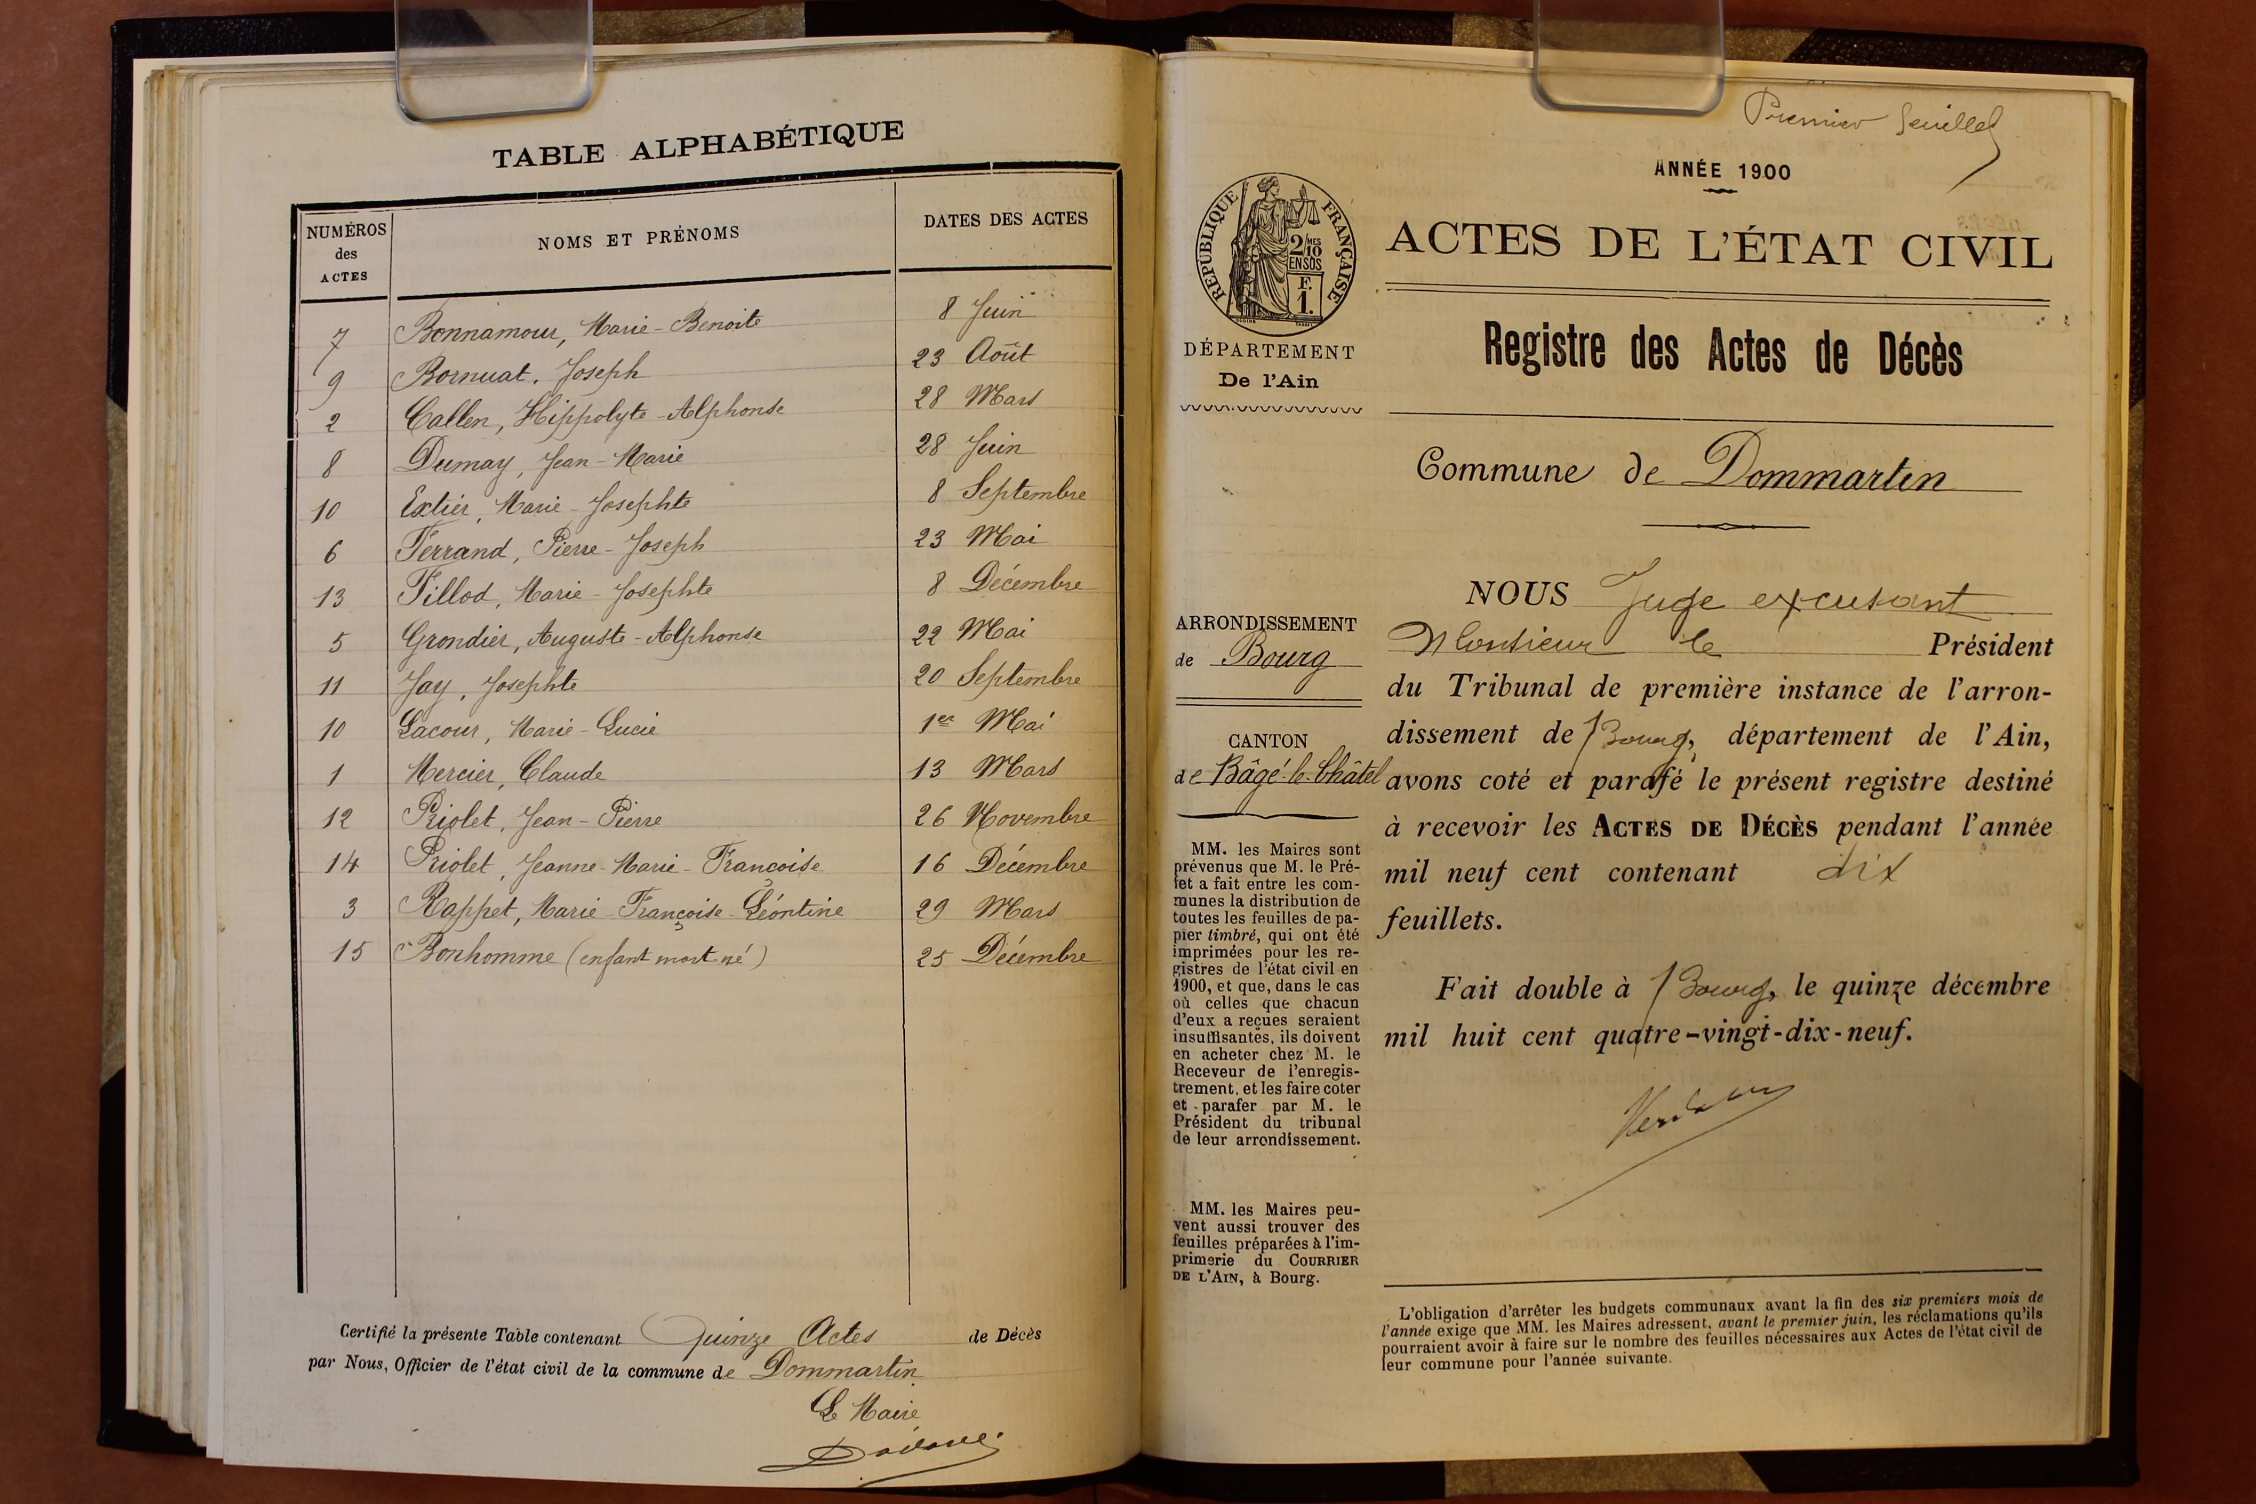 TABLE ALPHABÉTIQUE
NUMÉROS des ACTES
NOMS ET PRÉNOMS
DATES DES ACTES
7 Bonnamour, Marie-Benoite 8 Juin
9 Bornuat, Joseph 23 Août
2 Callen, Hippolyte-Alphonse 28 Mars
8 Dumay, Jean-Marie 28 Juin
10 Extier, Marie-Josephte 8 Septembre
6 Ferrand, Pierre-Joseph 23 Mai
13 Fillod, Marie-Josephte 8 Décembre
5 Grondier, Auguste-Alphonse 22 Mai
11 Jay, Josephte 20 Septembre
10 Lacour, Marie-Lucie 1er Mai
1 Mercier, Claude 13 Mars
12 Priolet, Jean-Pierre 26 Novembre
14 Priolet, Jeanne-Marie-Françoise 16 Décembre
3 Rappet, Marie-Françoise-Léontine 29 Mars
15 Bonhomme (enfant mort né) 25 Décembre
Certifié la présente Table contenant Quinze Actes de Décès
par Nous, Officier de l'état civil de la commune de Dommartin
Le Maire
Premier feuillet
ANNÉE 1900
RÉPUBLIQUE FRANÇAISE
2/10 MES
EN SUS
F.
1.
ACTES DE L'ÉTAT CIVIL
DÉPARTEMENT
De l'Ain
Registre des Actes de Décès
Commune de Dommartin
ARRONDISSEMENT
de Bourg
CANTON
de Bâgé-le-Châtel
MM. les Maires sont
prévenus que M. le Pré-
fet a fait entre les com-
munes la distribution de
toutes les feuilles de pa-
pier timbré, qui ont été
imprimées pour les re-
gistres de l'état civil en
1900, et que, dans le cas
où celles que chacun
d'eux a reçues seraient
insuffisantes, ils doivent
en acheter chez M. le
Receveur de l'enregis-
trement, et les faire coter
et parafer par M. le
Président du tribunal
de leur arrondissement.
MM. les Maires peu-
vent aussi trouver des
feuilles préparées à l'im-
primerie du COURRIER
DE L'AIN, à Bourg.
NOUS Juge excusant
Monsieur le Président
du Tribunal de première instance de l'arron-
dissement de Bourg, département de l'Ain,
avons coté et parafé le présent registre destiné
à recevoir les ACTES DE DÉCÈS pendant l'année
mil neuf cent contenant dix
feuillets.
Fait double à Bourg, le quinze décembre
mil huit cent quatre-vingt-dix-neuf.
L'obligation d'arrêter les budgets communaux avant la fin des six premiers mois de
l'année exige que MM. les Maires adressent, avant le premier juin, les réclamations qu'ils
pourraient avoir à faire sur le nombre des feuilles nécessaires aux Actes de l'état civil de
leur commune pour l'année suivante.